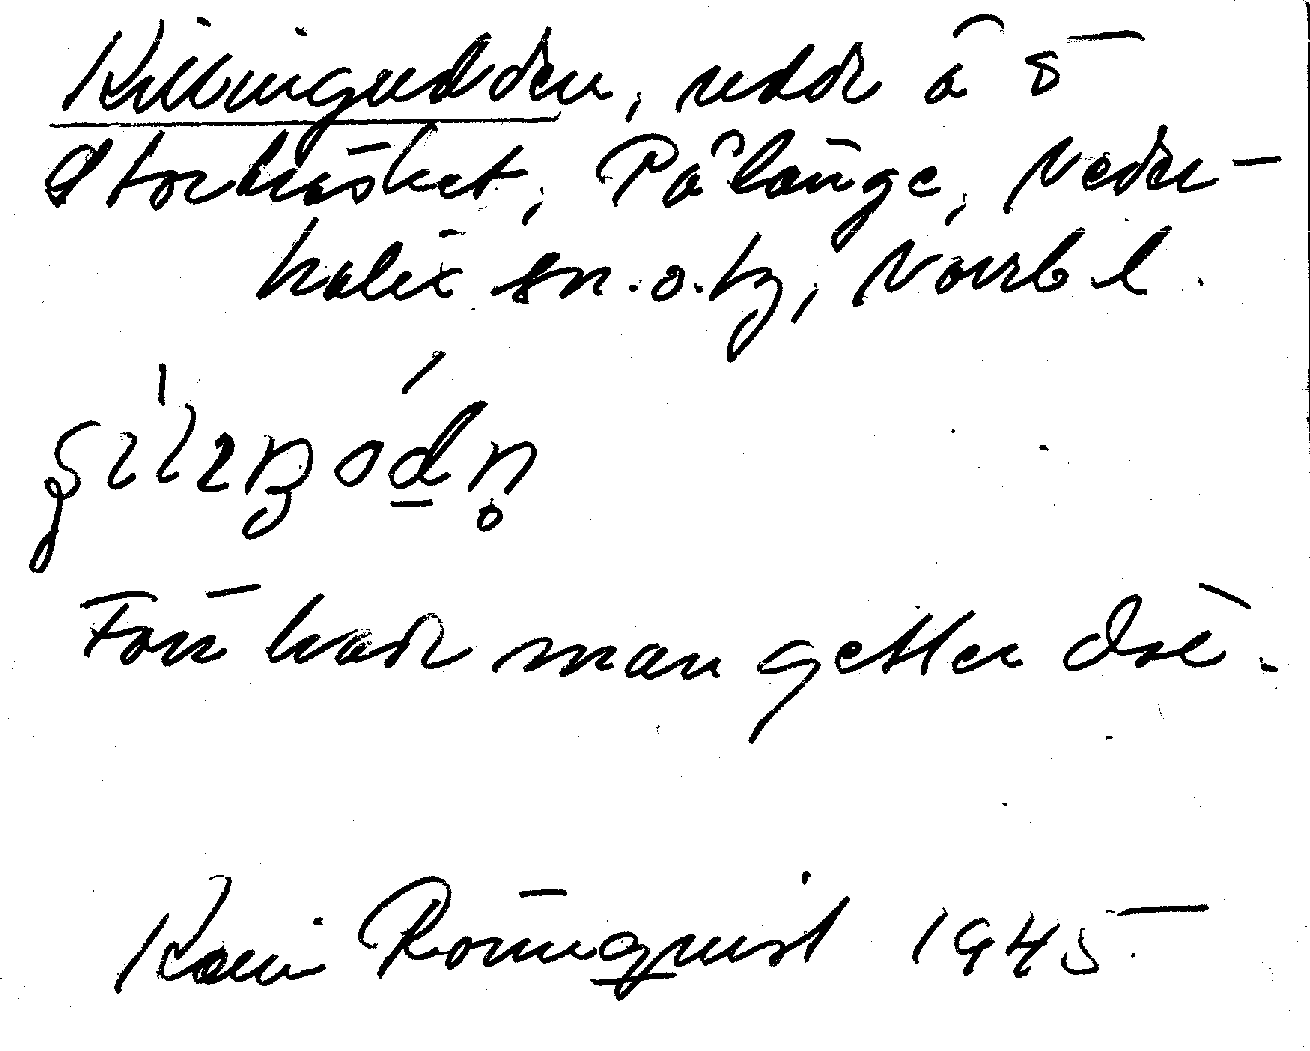 Killingudden, udde å ö
Storträsket, Pålänge, Neder-
kalix sn. o. tg, Norrb l.
Förr hade man getter där.
Karin Rönnquist 1945